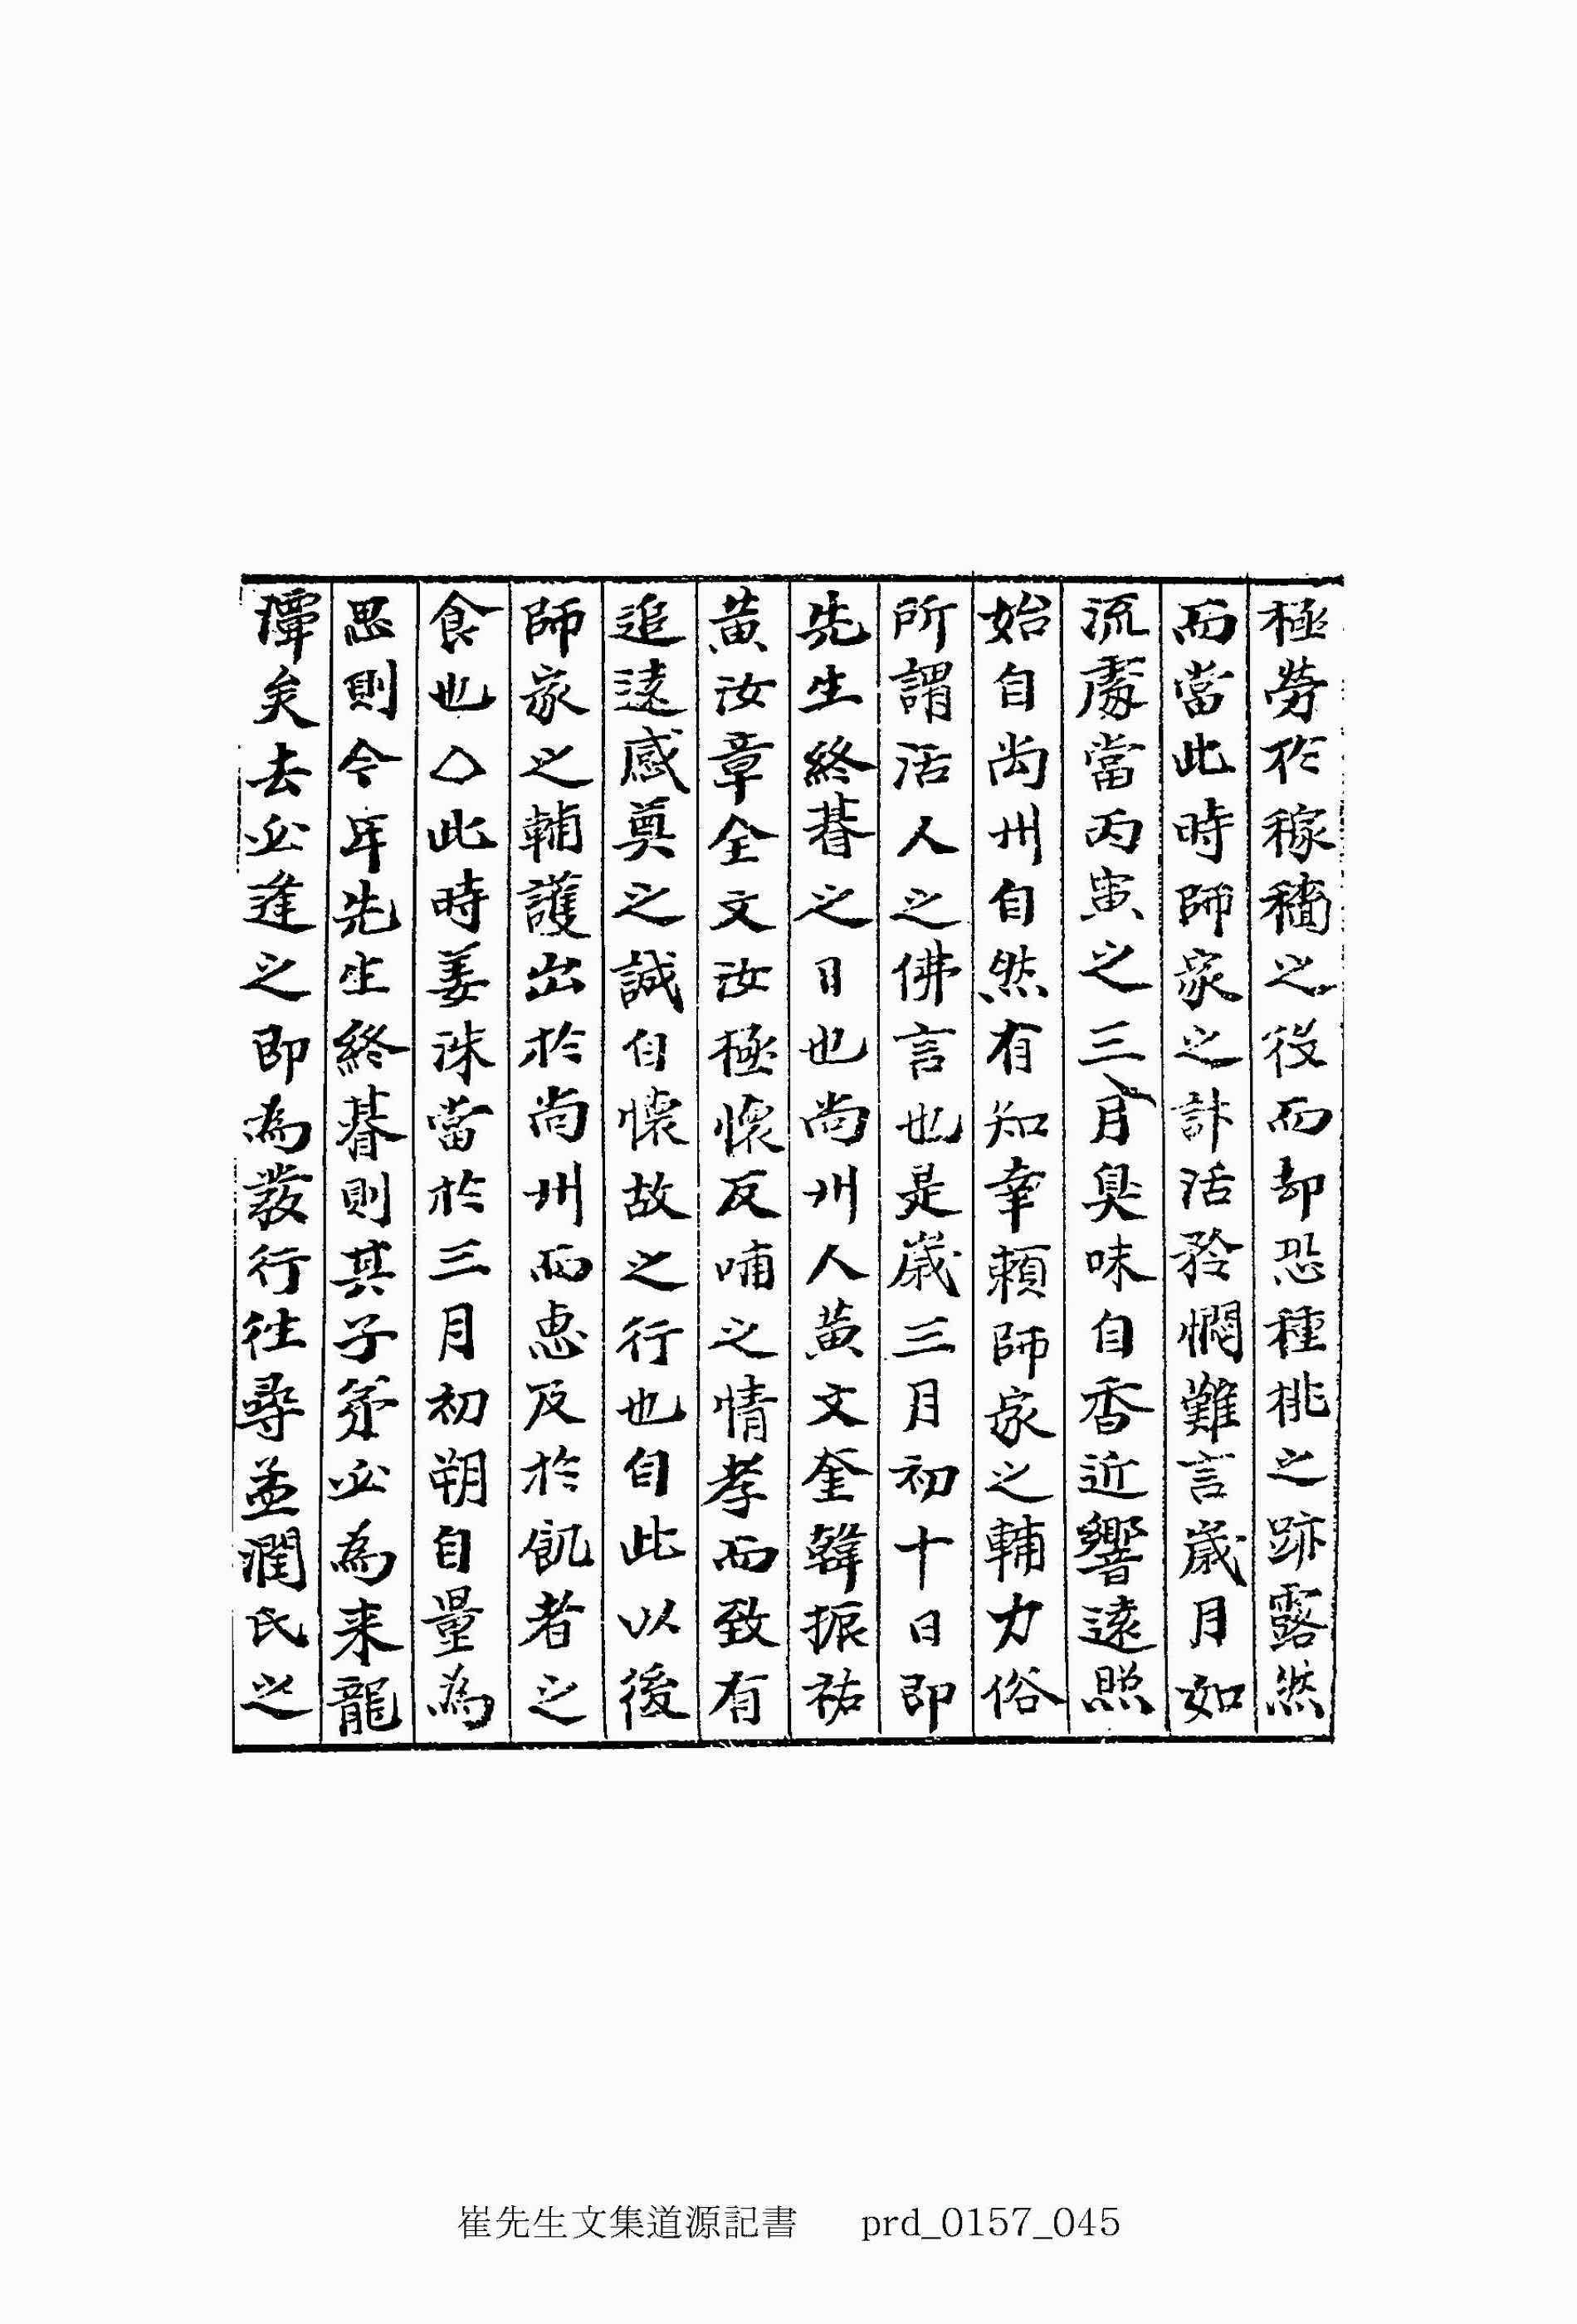 極勞作稼穡之役而却恐種桃之跡露然
而當此時師家之計活矜憫難言歲月如
流處當丙寅之三月臭味自香近響遠照
始自尚州自然有知幸賴師家之輔力俗
所謂活人之佛言也是歲三月初十日卽
先生終朞之日也尙州人黃文奎韓振祐
黃汝章全文汝極懷反哺之情孝而致有
追遠感奠之誠自懷故之行也自此以後
師家之輔護出於尙州而惠及於飢者之
食也〇此時姜洙當於三月初朔自量為
思則今年先生終朞則其子弟必為来龍
潭矣去必逢之即為發行往尋孟潤氏之
崔先生文集道源記書 prd_0157_045